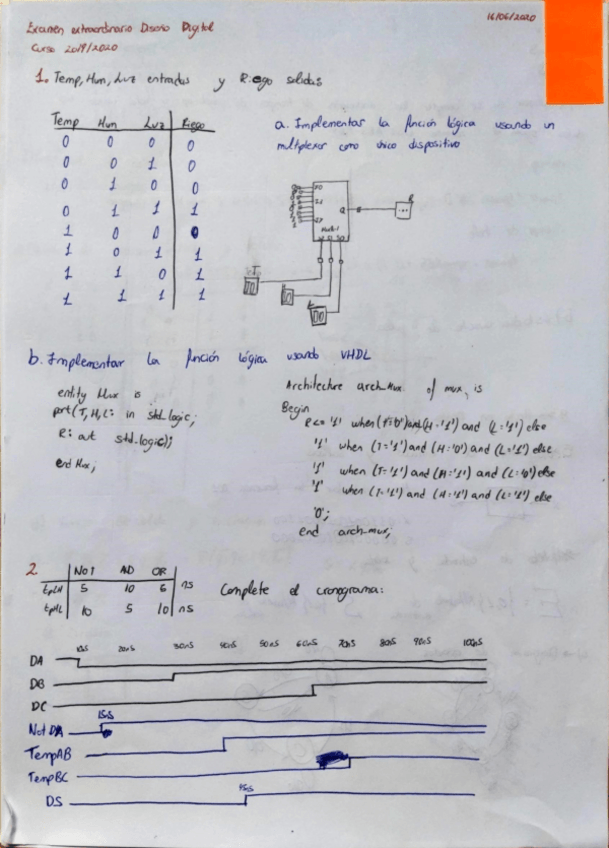 16/06/2020
Examen extraordinario Diseño Digital
Curso 2019/2020
1. Temp, Hum, Luz entradas y Riego salidas
Temp Hum Luz Riego
0 0 0 0
0 0 1 0
0 1 0 0
0 1 1 1
1 0 0 0
1 0 1 1
1 1 0 1
1 1 1 1
a. Implementar la función lógica usando un
multiplexor como único dispositivo
Q
R
T
b. Implementar la función lógica usando VHDL
entity Mux is
port (T, H, L: in std_logic;
R: out std_logic);
end Mux;
Architecture arch_Mux of mux is
Begin
R <= '1' when (T='0') and (H='1') and (L='1') else
'1' when (T='1') and (H='0') and (L='1') else
'1' when (T='1') and (H='1') and (L='0') else
'1' when (T='1') and (H='1') and (L='1') else
'0';
end arch_mux;
2
Not AD OR
tpLH 5 10 6 ns
tpHL 10 5 10 ns
Complete el cronograma:
10nS 20nS 30nS 40nS 50nS 60nS 70nS 80nS 90nS 100nS
DA
DB
DC
Not DA 15nS
TempAB
TempBC
DS